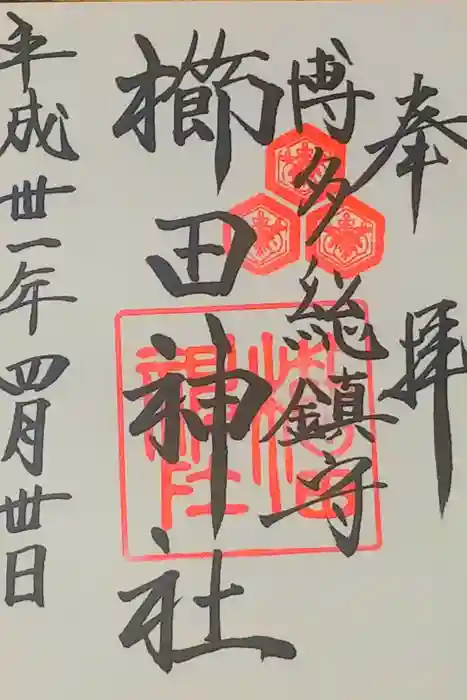 奉拝
博多総鎮守
櫛田神社
平成卅一年四月卅日
櫛田神社